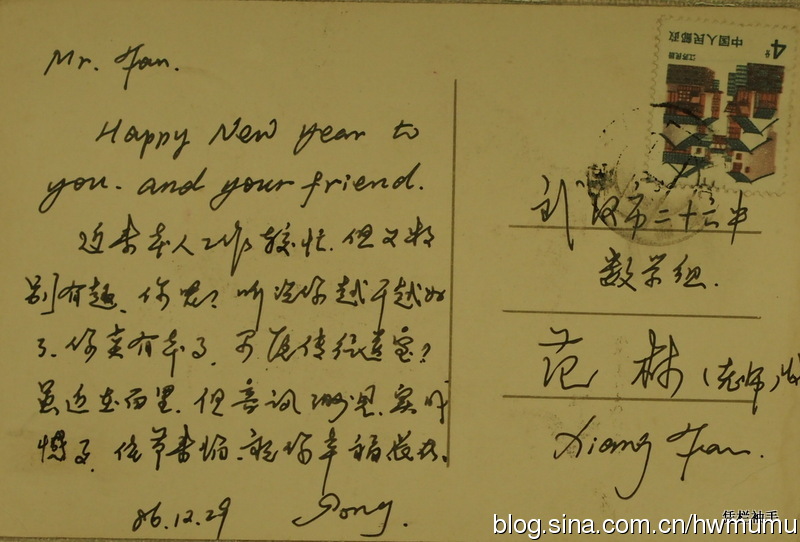 Mr. Fan.
Happy New year to
you. and your friend.
近来本人工作较忙.但又特
别有趣.你呢?听说你越干越好
了.你真有本事.可愿传经送宝?
虽近在面里.但音讯
.祝你幸福
86.12.29
武汉市二十六中
数学组.
范 林(老师)收
Xiang Fan.
4分
中国人民邮政
江苏民居
凭栏袖手
blog.sina.com.cn/hwmumu